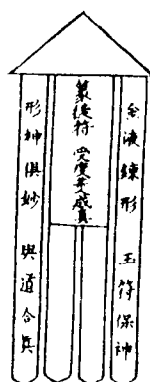 金液錬形 玉符保神
籙後符 受度弟成真
形神俱妙 與道合真